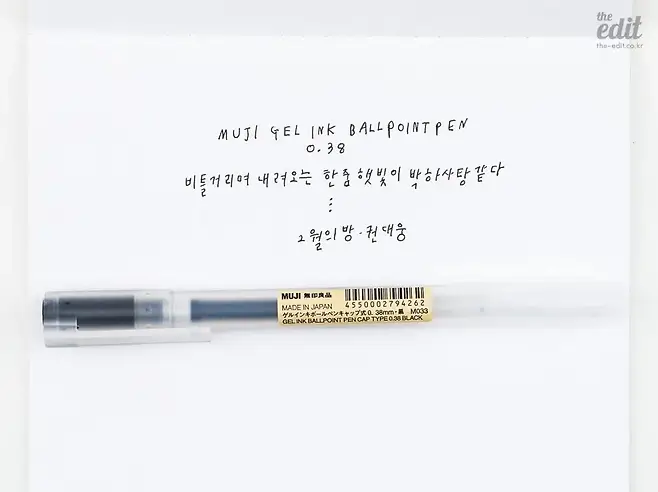 the
edit
the-edit.co.kr
MUJI GEL INK BALLPOINT PEN
0.38
비틀거리며 내려오는 한줌 햇빛이 박하사탕 같다
⋮
2월의 방 · 권대웅
MUJI 無印良品
MADE IN JAPAN
4550002794262
ゲルインキボールペンキャップ式 0.38mm・黒 M033
GEL INK BALLPOINT PEN CAP TYPE 0.38 BLACK